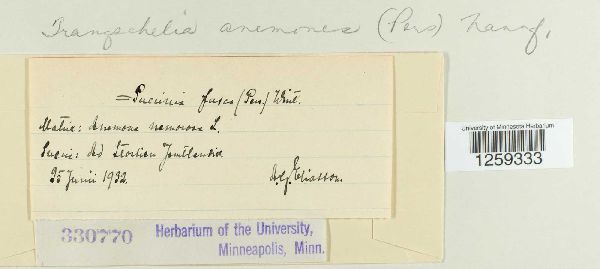 Tranzschelia anemones (Pers) Nannf.
= Puccinia fusca (Pers.) Wint.
Matrix: Anemone nemorosa L.
Suecia: Ad Storlien Jemtlandia
25 Junii 1932. A. G. Eliasson.
University of Minnesota Herbarium
1259333
330770
Herbarium of the University,
Minneapolis, Minn.